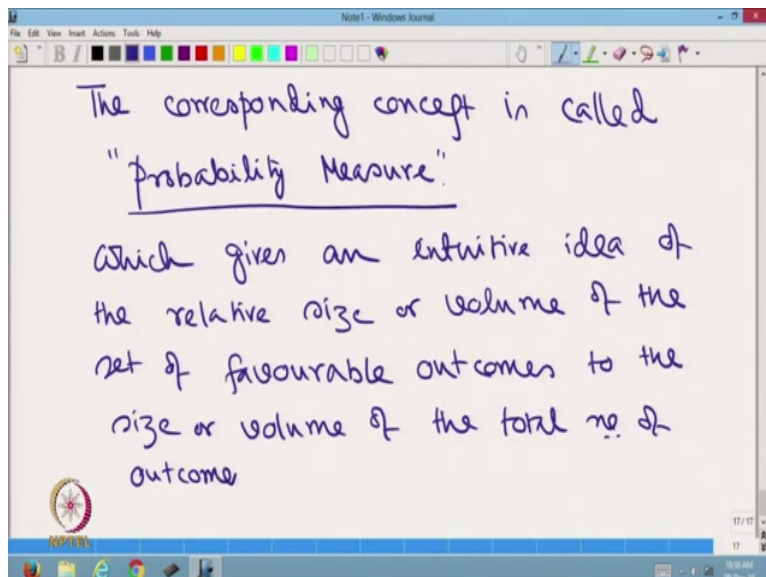 Note1 - Windows Journal
File Edit View Insert Actions Tools Help
The corresponding concept is called
"Probability Measure".
which gives an intuitive idea of
the relative size or volume of the
set of favourable outcomes to the
size or volume of the total no of
outcome
NPTEL
17 / 17
17
10:38 AM